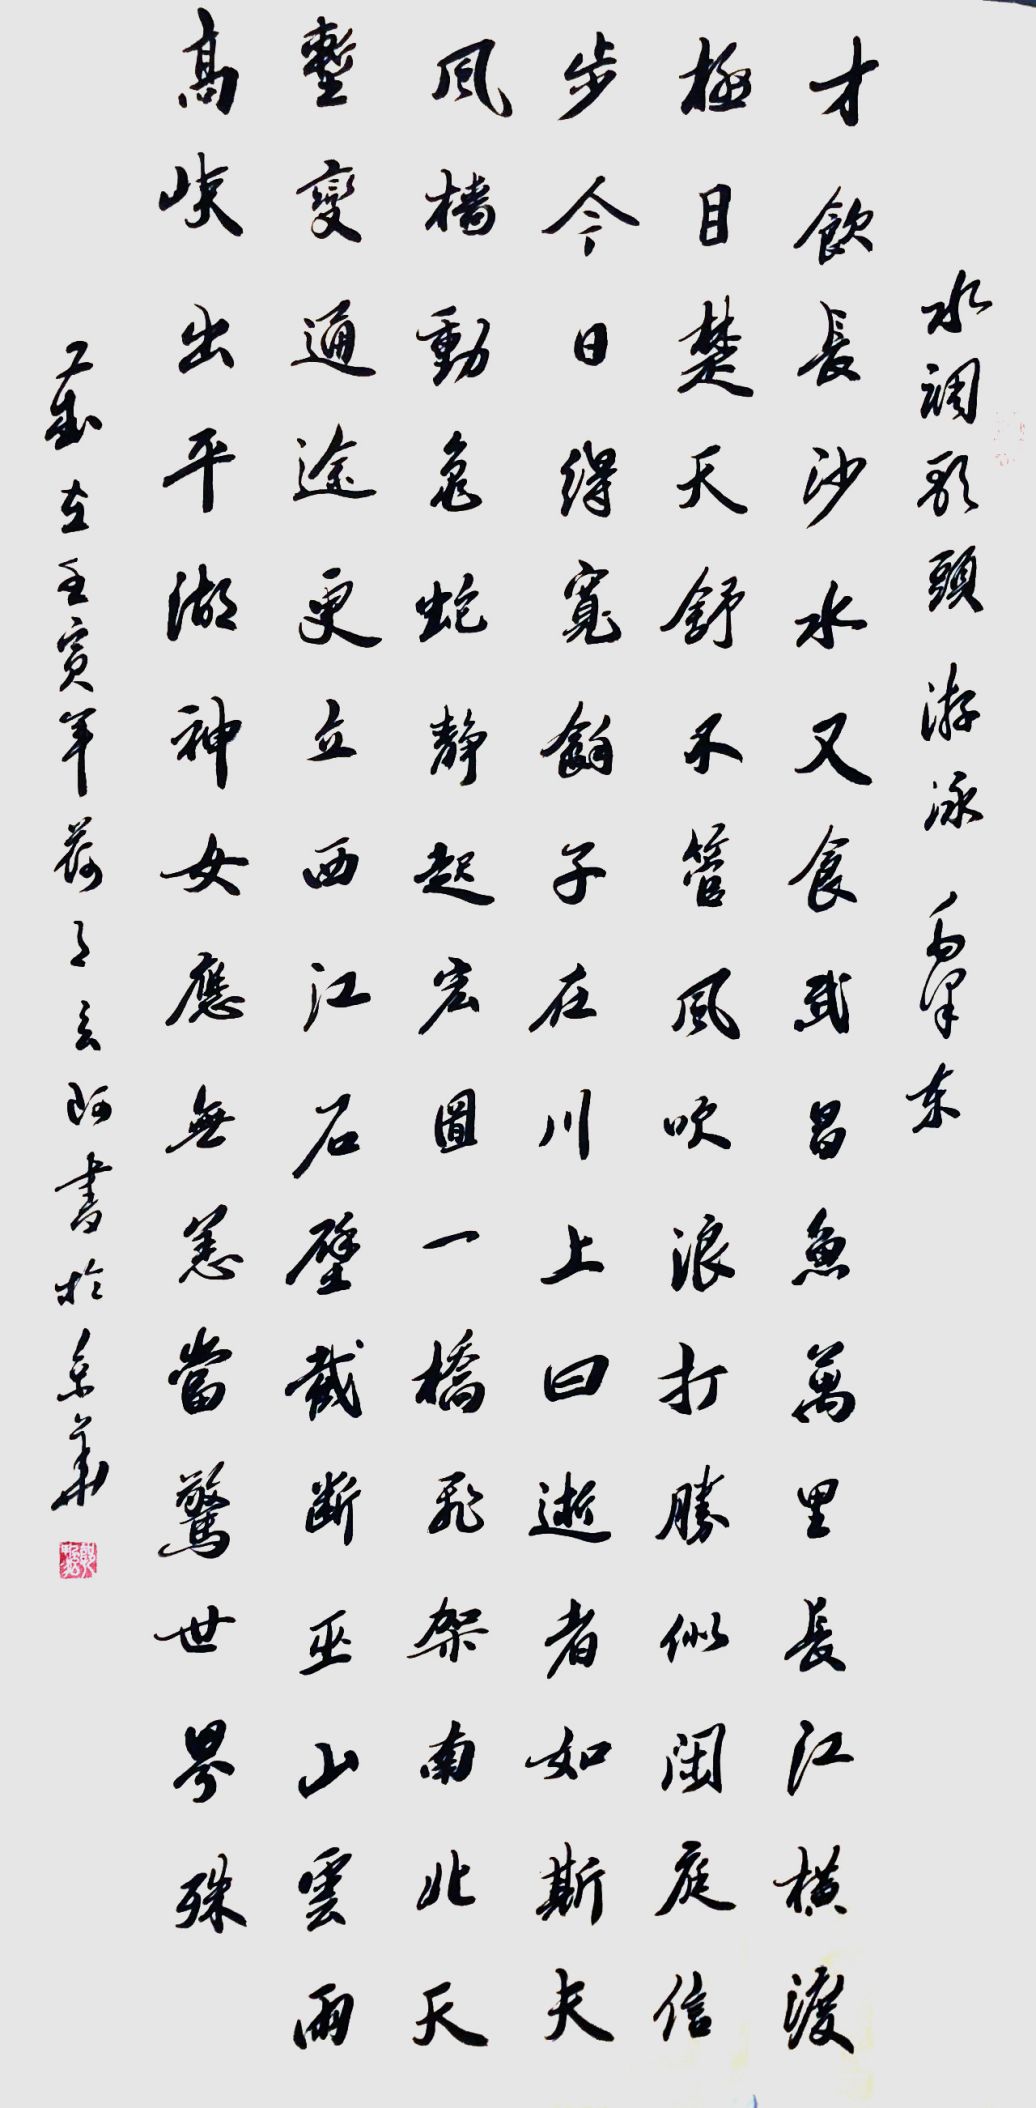 水調歌頭 游泳 毛澤东
才飲長沙水又食武昌魚萬里長江橫渡
極目楚天舒不管風吹浪打勝似閑庭信
步今日得寬餘子在川上曰逝者如斯夫
風檣動龜蛇靜起宏圖一橋飛架南北天
塹變通途更立西江石壁截斷巫山雲雨
高峽出平湖神女應無恙當驚世界殊
歲在壬寅年荷月書於京華